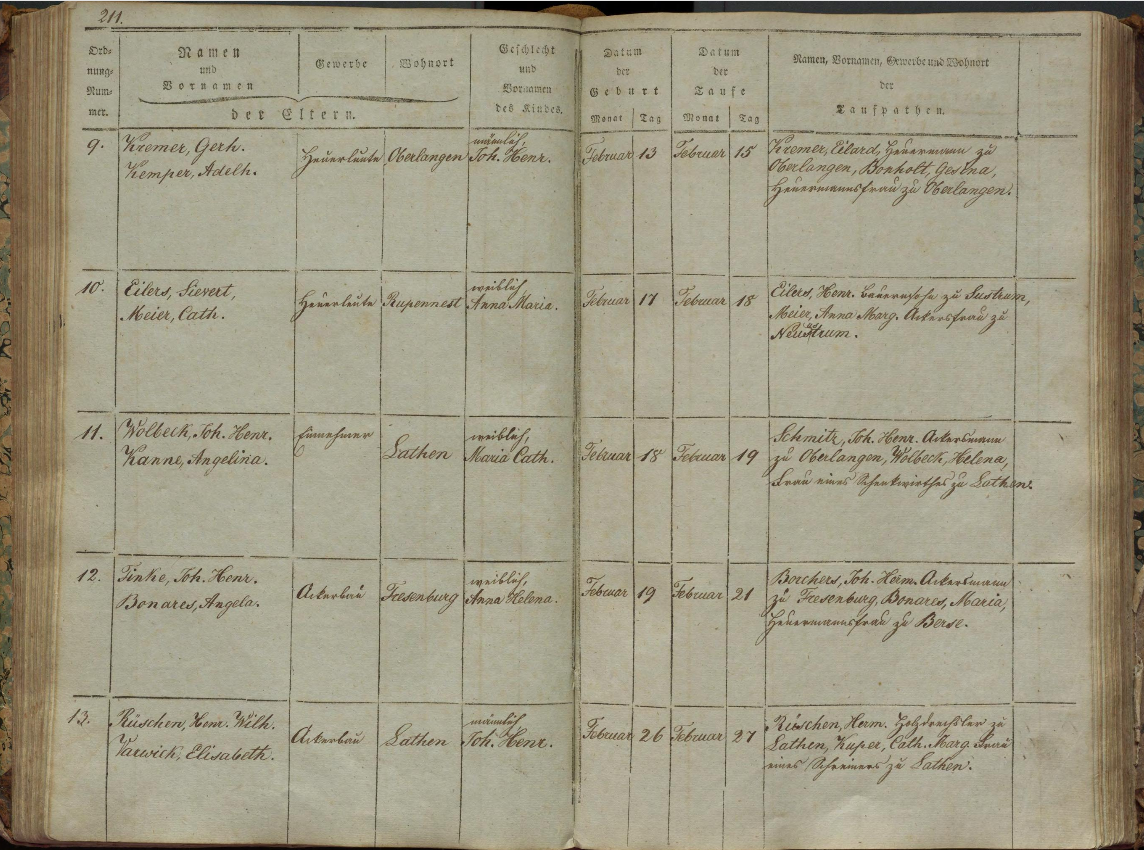 211.
Ord-
nungs-
Num-
mer.
Namen
und
Vornamen
Gewerbe
Wohnort
der Eltern.
Geschlecht
und
Vornamen
des Kindes.
Datum
der
Geburt
Monat Tag
Datum
der
Taufe
Monat Tag
Namen, Vornamen, Gewerbe und Wohnort
der
Taufpathen.
9.
Kremer, Gerh.
Kemper, Adelh.
Heuerleute
Oberlangen
männlich,
Joh. Henr.
Februar 13
Februar 15
Kremer, Eilard, Heuermann zu
Oberlangen, Bonholt, Gesina,
Heuermannsfrau zu Oberlangen.
10.
Eilers, Sievert,
Meier, Cath.
Heuerleute
Rupennest
weiblich
Anna Maria.
Februar 17
Februar 18
Eilers, Henr. Bauernsohn zu Sustrum,
Meier, Anna Marg. Ackersfrau zu
Neusustrum.
11.
Wolbeck, Joh. Henr.
Kanne, Angelina.
Einnehmer
Lathen
weiblich,
Maria Cath.
Februar 18
Februar 19
Schmitz, Joh. Henr. Ackersmann
zu Oberlangen, Wolbeck, Helena,
Frau eines Schenkwirthes zu Lathen.
12.
Finke, Joh. Henr.
Bonares, Angela.
Ackerbau
Fresenburg
weiblich,
Anna Helena.
Februar 19
Februar 21
Borchers, Joh. Herm. Ackersmann
zu Fresenburg, Bonares, Maria,
Heuermannsfrau zu Berse.
13.
Rüschen, Henr. Wilh.
Varwick, Elisabeth.
Ackerbau
Lathen
männlich
Joh. Henr.
Februar 26
Februar 27
Rüschen, Herm. Holzdrechsler zu
Lathen, Kuper, Cath. Marg. Frau
eines Schreiners zu Lathen.